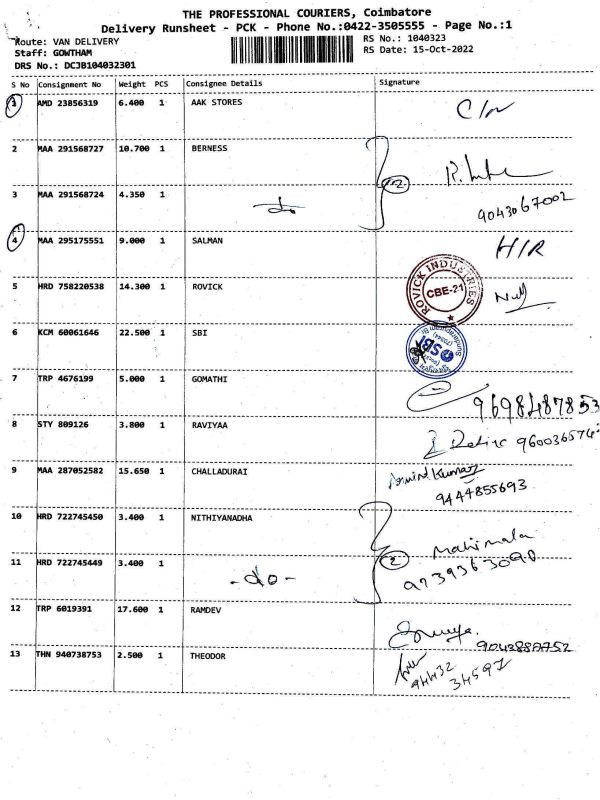 THE PROFESSIONAL COURIERS, Coimbatore
Delivery Runsheet - PCK - Phone No.:0422-3505555 - Page No.:1
Route: VAN DELIVERY
Staff: GOWTHAM
DRS No.: DCJB104032301
RS No.: 1040323
RS Date: 15-Oct-2022
S No Consignment No Weight PCS Consignee Details Signature
1 AMD 23856319 6.400 1 AAK STORES
2 MAA 291568727 10.700 1 BERNESS
2
3 MAA 291568724 4.350 1 do
9043067002
4 MAA 295175551 9.000 1 SALMAN H/R
5 HRD 758220538 14.300 1 ROVICK
ROVICK INDUSTRIES
CBE-21
6 KCM 60061646 22.500 1 SBI
SBI
7 TRP 4676199 5.000 1 GOMATHI
9698487853
8 STY 809126 3.800 1 RAVIYAA
9 MAA 287052582 15.650 1 CHALLADURAI
Arvind Kumar
9444855693
10 HRD 722745450 3.400 1 NITHIYANADHA
2
Mahimala
11 HRD 722745449 3.400 1 - do -
9739363090
12 TRP 6019391 17.600 1 RAMDEV
13 THN 940738753 2.500 1 THEODOR
94432
34597